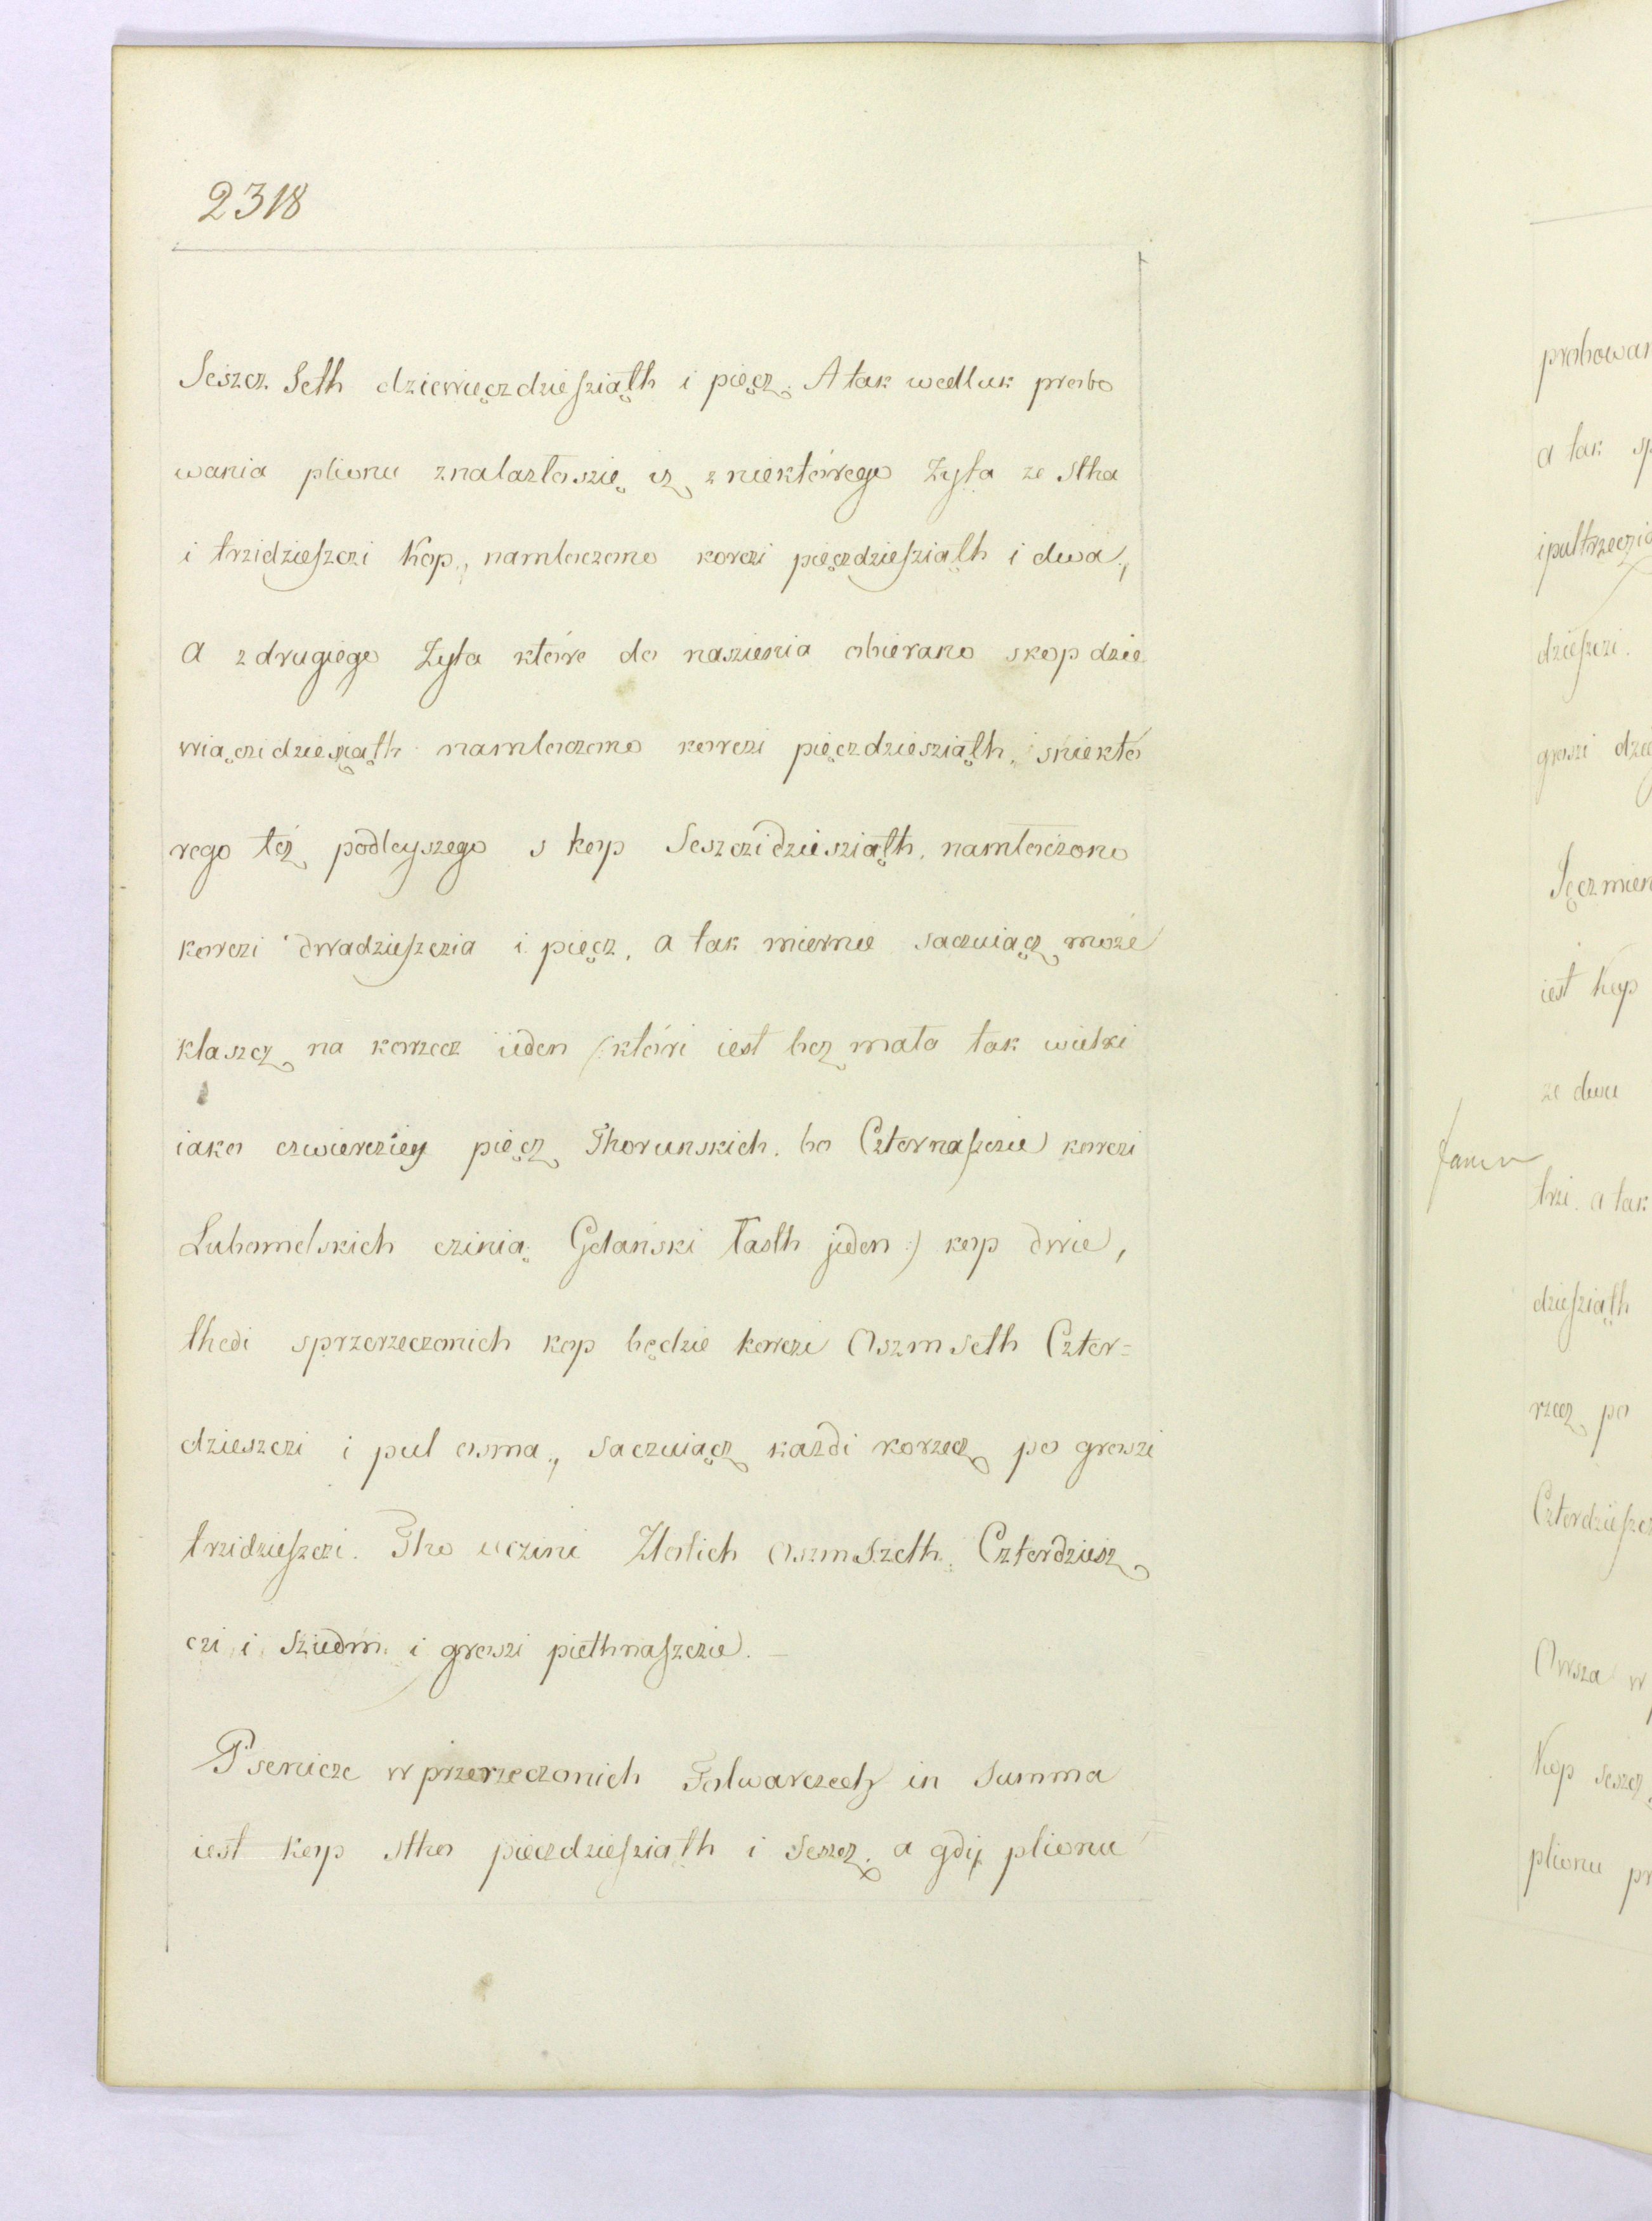 2318
Seszcz Seth dziewięczdziesziąth i pięcz. A tak wedluk probo
wania plionu znalazłoszię iż z niektórego Żyta ze Stha
i trzidzieszczi Kop, namłoczono korczi pięczdziesziąth i dwa,
A z drugiego Żyta które do naszienia obierano skop dzie
wiączidziesiąth namłoczono korczi pięczdziesziąth, sniektó
rego też podleyszego s kop Seszczidziesziąth, namłoczono
korczi dwadzieszczia i pięcz, a tak miernie saczuiącz może
klaszcz na korzecz ieden (: któri iest bez mała tak wielki
iako czwierczięy pięcz Thorunskich. bo Czternaszczie korczi
Lubomelskich czinią Gdański łasth jeden :) kop dwie,
thedi sprzerzeczonich kop będzie korczi Oszmseth Czter=
dzieszczi i pul osma, saczuiącz każdi korzecz po groszi
trzidzieszczi. Tho uczini Zlotich OszmSzeth Czterdziesz
czi i Sziedm i groszi piethnaszczie.
Psenicze w przerzeczonich Folwarczech in Summa
iest kop stho pieczdziesziąth i Seszcz. a gdij plionu
probowan
a tak sp
ipultrzeczia
dzieszczi.
groszi dzie
Jęczmien
iest kop
ze dwu
trzi. a tak
dziesziąth
rzecz po
Czterdziescz
Owsza w
Kop seszcz
plionu pr